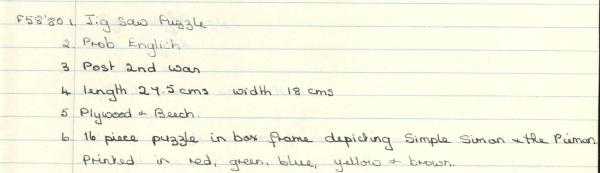 F58'80 1. Jig Saw Puzzle
2. Prob English
3 Post 2nd war
4. length 27.5 cms width 18 cms
5 Plywood & Beech.
6. 16 piece puzzle in box frame depicting Simple Simon & the Pieman
Printed in red, green, blue, yellow & brown.